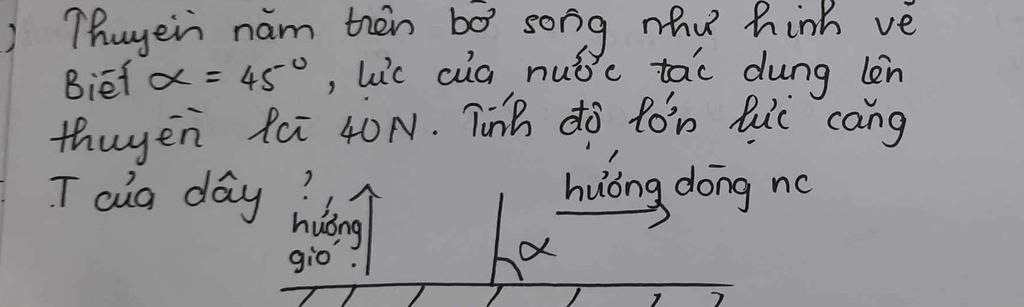 ) Thuyền nằm trên bờ sông như hình vẽ
Biết α = 45°, lực của nước tác dụng lên
thuyền là 40N. Tính độ lớn lực căng
T của dây ?
hướng dòng nc
hướng
gió
α